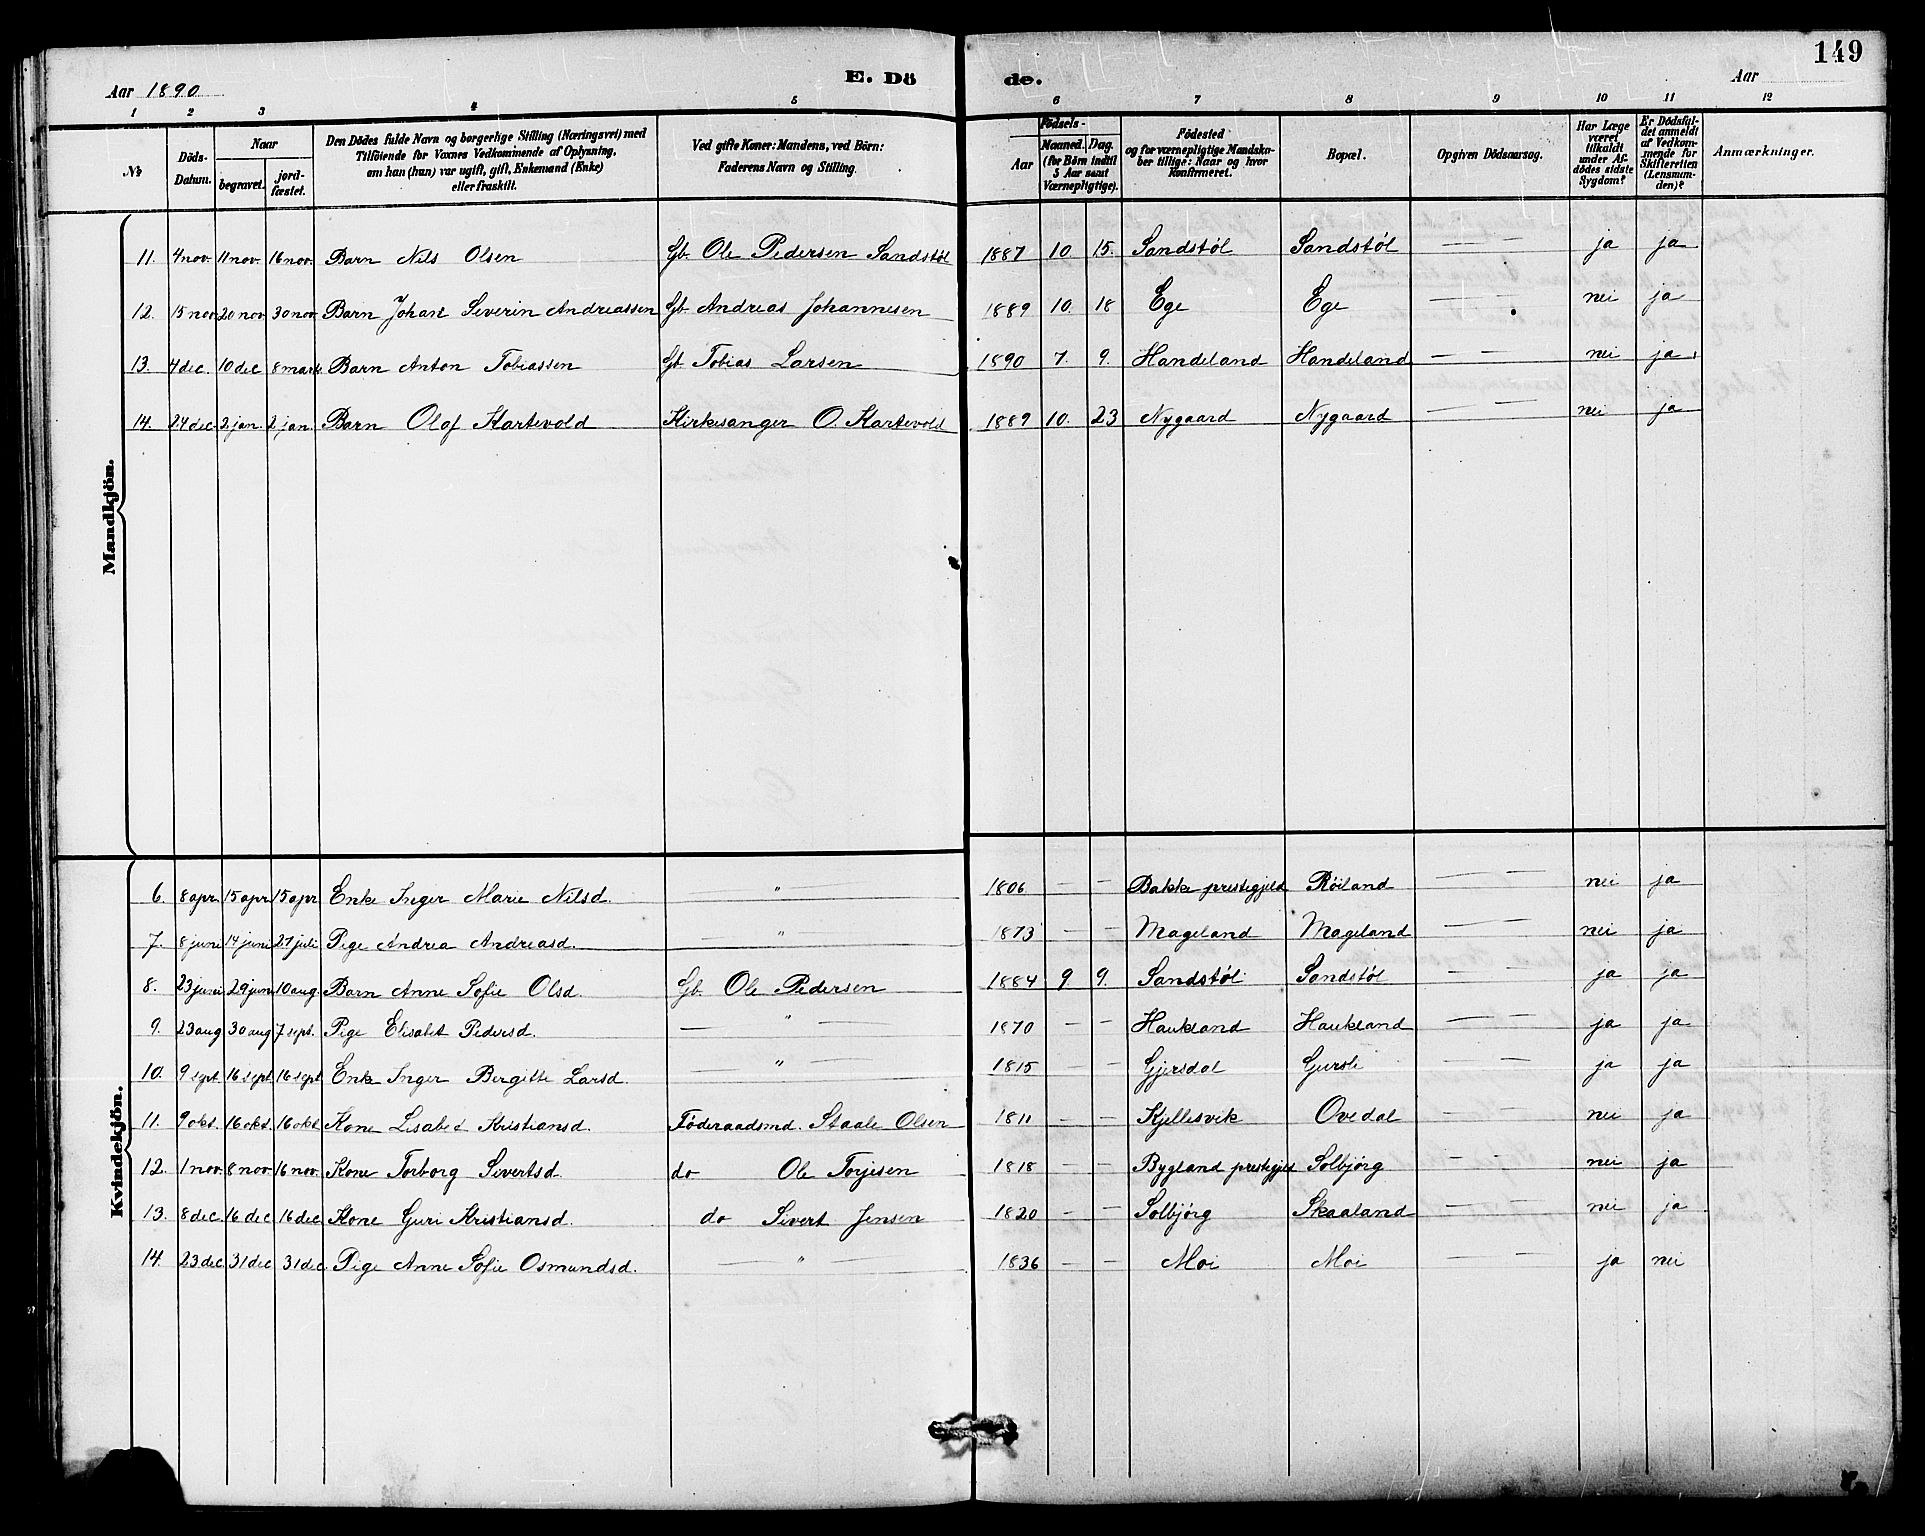 149
Aar 1890
E. Dö
de.
Aar
1 2 3 4 5 6 7 8 9 10 11 12
№
Döds-Datum.
Naar
begravet.
jordfæstet.
Den Dödes fulde Navn og borgerlige Stilling (Næringsvei) med
Tilföiende for Voxnes Vedkommende af Oplysning,
om han (hun) var ugift, gift, Enkemand (Enke)
eller fraskilt.
Ved gifte Koner: Mandens, ved Börn:
Faderens Navn og Stilling.
Födsels-
Aar
Maaned. Dag.
(for Börn indtil
5 Aar samt
Værnepligtige).
Födested
og for værnepligtige Mandska-
ber tillige: Naar og hvor
Konfirmeret.
Bopæl.
Opgiven Dödsaarsag.
Har Læge
været
tilkaldt
under Af-
dödes sidste
Sygdom?
Er Dödsfal-
det anmeldt
af Vedkom-
mende for
Skifteretten
(Lensman-
den)?
Anmærkninger.
Mandkjön.
11. 4 nov. 11 nov. 16 nov. Barn Nils Olsen Gb. Ole Pedersen Sandstøl 1887 10. 15. Sandstøl Sandstøl — — ja ja
12. 15 nov 20 nov 30 nov. Barn Johan Severin Andreassen Gb. Andreas Johannesen 1889 10. 18 Ege Ege — — nei ja
13. 4 dec. 10 dec 8 marts Barn Anton Tobiassen Gb. Tobias Larsen 1890 7. 9. Handeland Handeland — — nei ja
14. 24 dec. 2 jan. 2 jan. Barn Olaf Kartevold Kirkesanger O. Kartevold 1889 10. 23 Nygaard Nygaard — — nei ja
Kvindekjön.
6. 8 apr. 15 apr 15 apr Enke Inger Marie Nilsd. — " — 1806 — — Bakke prestegjeld Røiland — — nei ja
7. 8 juni 14 juni 27 juli Pige Andrea Andreasd. — " — 1873 — — Mageland Mageland — — nei ja
8. 23 juni 29 juni 10 aug. Barn Anne Sofie Olsd. Gb. Ole Pedersen 1884 9 9. Sandstøl Sandstøl — — ja ja
9. 23 aug 30 aug 7 sept. Pige Elisabet Pedersd. — " — 1870 — — Haukland Haukland — — ja ja
10. 9 sept 16 sept. 16 sept Enke Inger Bergitte Larsd. " — 1815 — — Gjersdal Gursli — — ja ja
11. 9 okt. 16 okt. 16 okt Kone Lisabet Kristiansd. Føderaadsmd. Staale Olsen 1811 — — Kjellesvik Ovedal — — nei ja
12. 1 nov. 8 nov. 16 nov. Kone Torborg Sivertsd. do Ole Torjisen 1818 — — Bygland prestegjeld Solbjørg — — nei ja
13. 8 dec. 16 dec 16 dec Kone Guri Kristiansd. do Sivert Jensen 1820 — — Solbjørg Skaaland — — nei ja
14. 23 dec 31 dec 31 dec Pige Anne Sofie Osmundsd. — " — 1836 — — Moi Moi — — ja nei